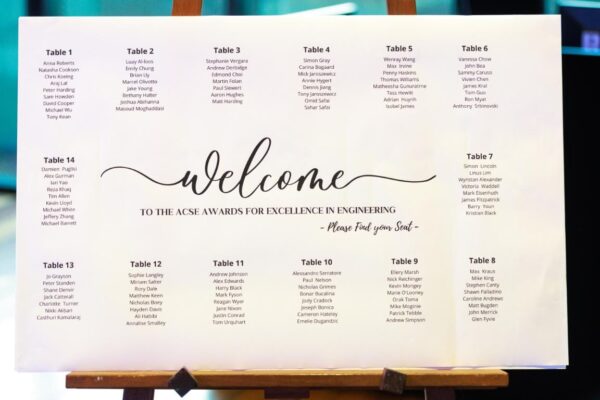 Table 1
Anna Roberts
Natasha Cookson
Chris Koeing
Araj Lal
Peter Harding
Sam Howden
David Cooper
Michael Wu
Tony Kean
Table 2
Luay Al-Joos
Emily Chung
Brian Lly
Marcel Olivotto
Jake Young
Bethany Halter
Joshua Abihanna
Masoud Moghaddasi
Table 3
Stephanie Vergara
Andrew Derbidge
Edmond Choi
Martin Folan
Paul Siewert
Aaron Hughes
Matt Harding
Table 4
Simon Gray
Carina Bogaard
Mick Jaroszewicz
Annie Hygert
Dennis Jiang
Tony Jaroszewicz
Omid Safai
Sahar Safai
Table 5
Wenray Wang
Max Irvine
Penny Haskins
Thomas Williams
Matheesha Gunaratne
Tess Hewitt
Adrian Huynh
Isobel James
Table 6
Vanessa Chow
John Bea
Sammy Caruso
Vivien Chen
James Kral
Tom Guo
Ron Myer
Anthony
Table 14
Damien Puglisi
Alex Gurman
Ian Yao
Reza Khaq
Tim Allen
Kevin Lloyd
Michael White
Jeffery Zhang
Michael Barrett
welcome
TO THE ACSE AWARDS FOR EXCELLENCE IN ENGINEERING
- Please Find your Seat -
Table 7
Simon Lincoln
Linus Lim
Wynstan Alexander
Victoria Waddell
Mark Eisenhuth
James Fitzpatrick
Barry Youn
Kristian Black
Table 13
Jo Grayson
Peter Standen
Shane Denoir
Jack Catterall
Charlotte Turner
Nikki Akbari
Casthuri Kamalaraj
Table 12
Sophie Langley
Miriam Salter
Rory Dale
Matthew Keen
Nicholas Bony
Hayden Davis
Ali Habibi
Annalise Smalley
Table 11
Andrew Johnson
Alex Edwards
Harry Black
Mark Fyson
Reagan Wyer
Jane Nixon
Justin Conrad
Tom Urquhart
Table 10
Alessandro Serratore
Paul Nelson
Nicholas Grimes
Bonar Bucalina
Jody Cradock
Joseph Bonica
Cameron Hateley
Emelie Dugandzic
Table 9
Ellery Marsh
Nick Reichinger
Kevin Mongey
Marie O'Looney
Orak Toma
Mike Mogine
Patrick Tebble
Andrew Simpson
Table 8
Max Kraus
Mike King
Stephen Canty
Shawn Palladino
Caroline Andrews
Matt Bugden
John Merrick
Glen Fyvie